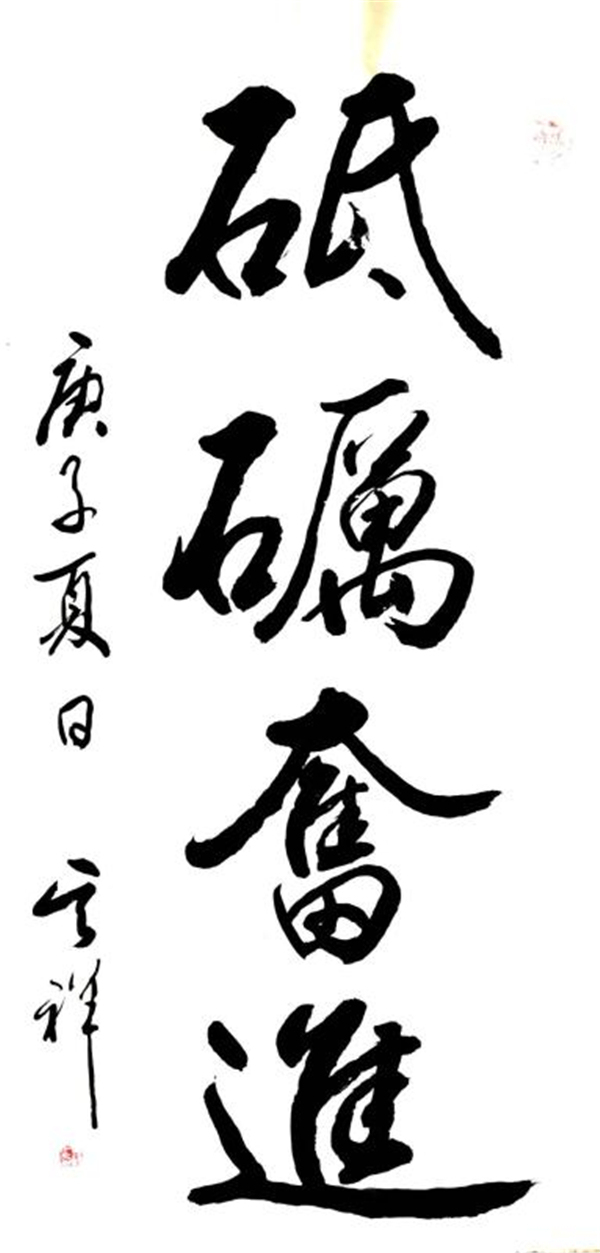 砥礪奮進
庚子夏日 云祥